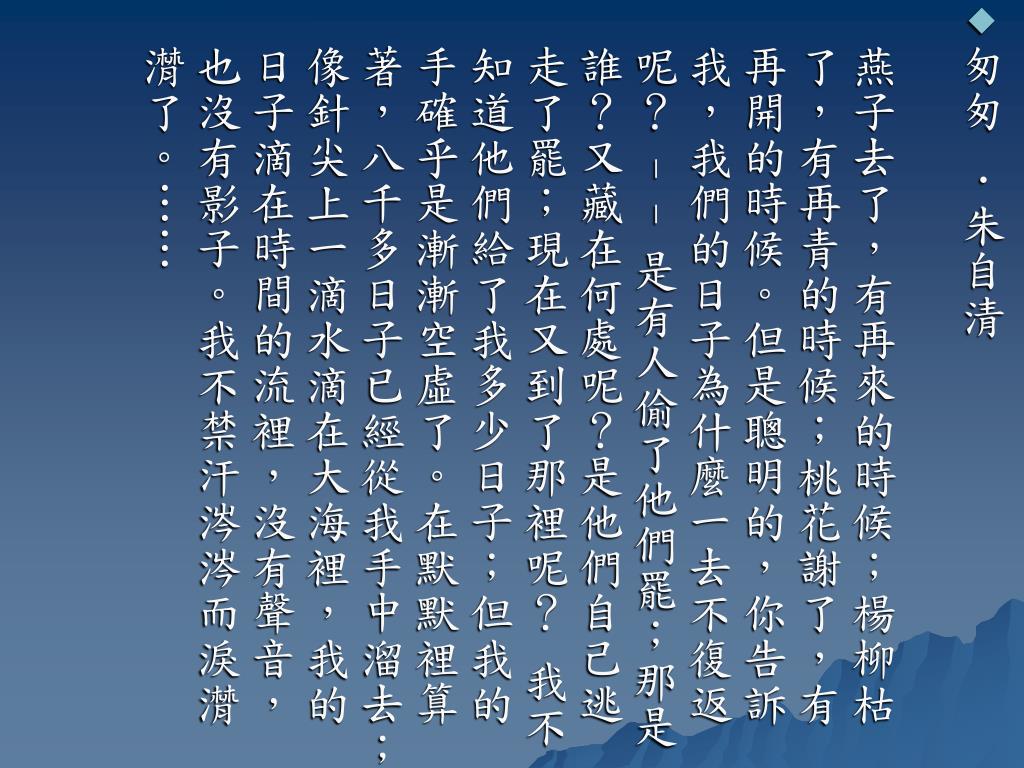 匆匆 ．朱自清
燕子去了，有再來的時候；楊柳枯
了，有再青的時候；桃花謝了，有
再開的時候。但是聰明的，你告訴
我，我們的日子為什麼一去不復返
呢？－－ 是有人偷了他們罷；那是
誰？又藏在何處呢？是他們自己逃
走了罷；現在又到了那裡呢？ 我不
知道他們給了我多少日子；但我的
手確乎是漸漸空虛了。在默默裡算
著，八千多日子已經從我手中溜去；
像針尖上一滴水滴在大海裡，我的
日子滴在時間的流裡，沒有聲音，
也沒有影子。我不禁汗涔涔而淚潸
潸了。……